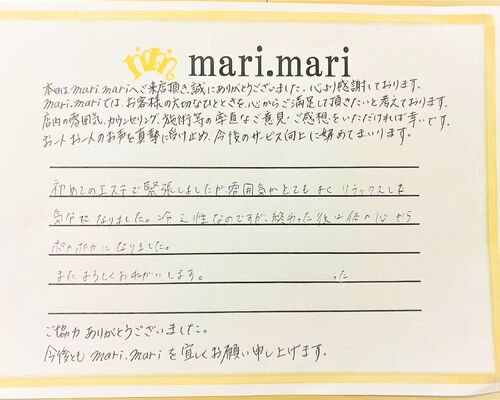 mari.mari
本日はmari.mariへご来店頂き、誠にありがとうございました。心より感謝しております。
mari.mariでは、お客様の大切なひとときを、心からご満足して頂きたいと考えております。
店内の雰囲気、カウンセリング、施術等の率直なご意見・ご感想をいただければ幸いです。
お一人お一人のお声を真摯に受け止め、今後のサービス向上に努めてまいります。
初めてのエステで緊張しましたが雰囲気がとてもよくリラックスした
気分になりました。冷え性なのですが、終わった後は体の心から
ポカポカになりました。
またよろしくおねがいします。
ご協力ありがとうございました。
今後ともmari.mariを宜しくお願い申し上げます。